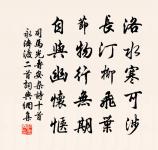 洛水寒可涉
長汀柳飛葉
節物行無期
自與幽懷愜
司馬光壽安雜詩十首
永濟渡二首詞典網集